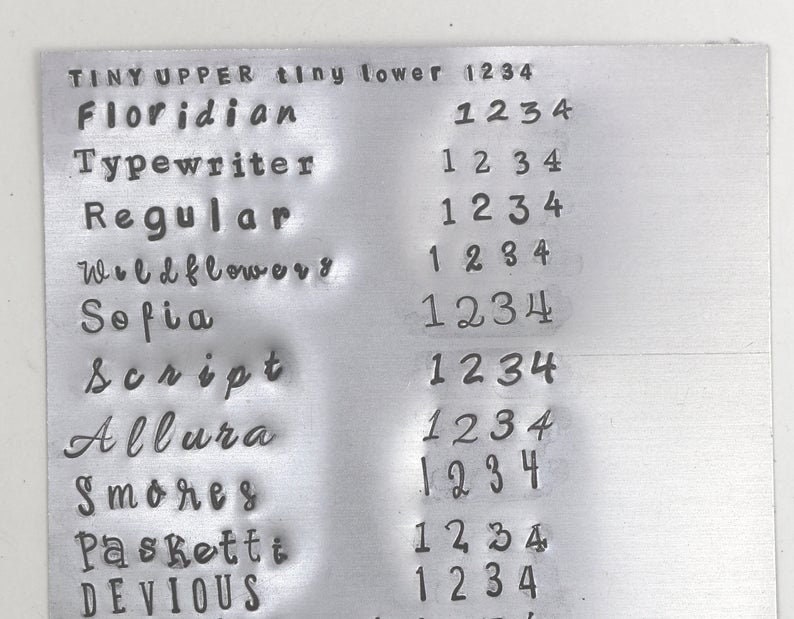 TINY UPPER tiny lower 1234
Floridian 1234
Typewriter 1 2 3 4
Regular 1 2 3 4
Wildflowers 1 2 3 4
Sofia 1234
Script 1 2 3 4
Allura 1 2 3 4
Smores 1 2 3 4
Pasketti 1 2 3 4
DEVIOUS 1 2 3 4